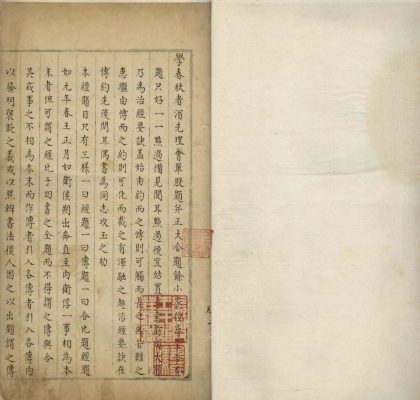 學春秋者須先理會單股題并正大合題餘小
題只好一一點過備見聞耳點過後宜姑置
乃為治經要訣蓋始由約而之博則可觸而長
繼由博而之約則可化而裁之有渾融之趣治經要訣在
博約先後間耳偶書為同志攻玉之劝
本經題目只有三樣一曰經題一曰傳題一曰合比題經題
如元年春王正月如衛侯朔出奔直至内衛俘一事相為本
末者但可謂之經比于四書之全題而不得謂之傳與合
其或事之不相為本末而作傳者引入各傳者引入各傳内
以發明褒貶之義或以照辨書法後人因之以出題謂之傳